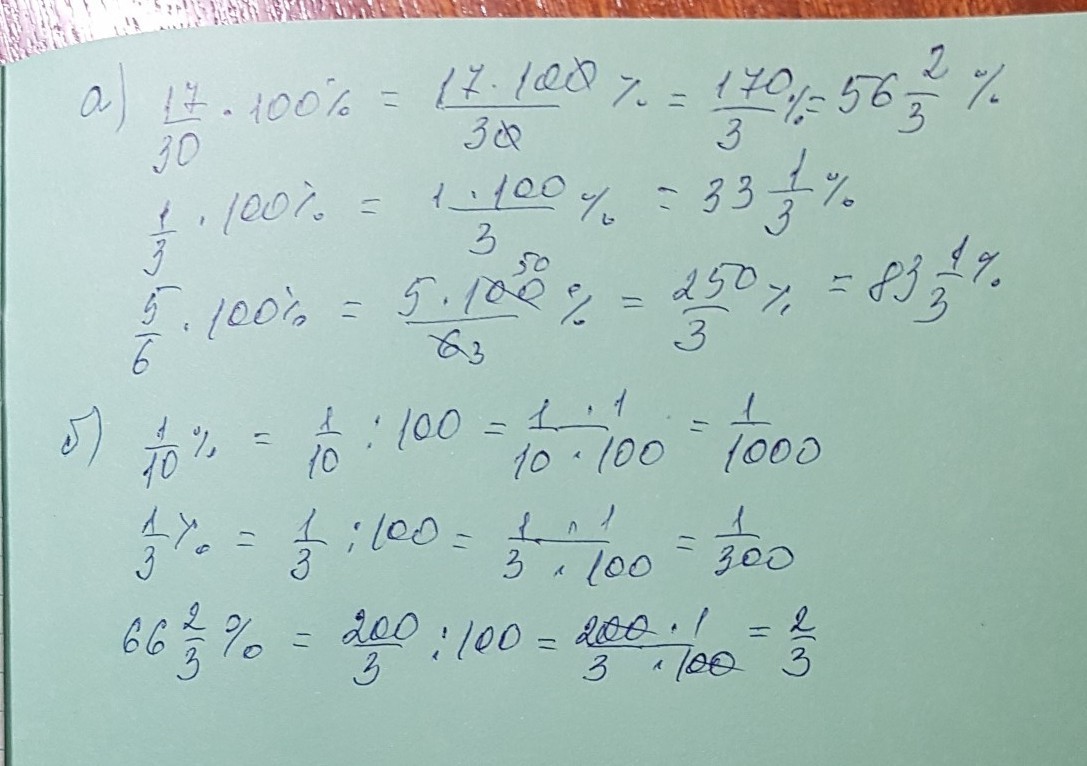 а) 17/30 · 100% = 17·100/30 % = 170/3 % = 56 2/3 %
1/3 · 100% = 1·100/3 % = 33 1/3 %
5/6 · 100% = 5·100 50/6 3 % = 250/3 % = 83 1/3 %
б) 1/10 % = 1/10 : 100 = 1·1/10·100 = 1/1000
1/3 % = 1/3 : 100 = 1·1/3·100 = 1/300
66 2/3 % = 200/3 : 100 = 200·1/3·100 = 2/3